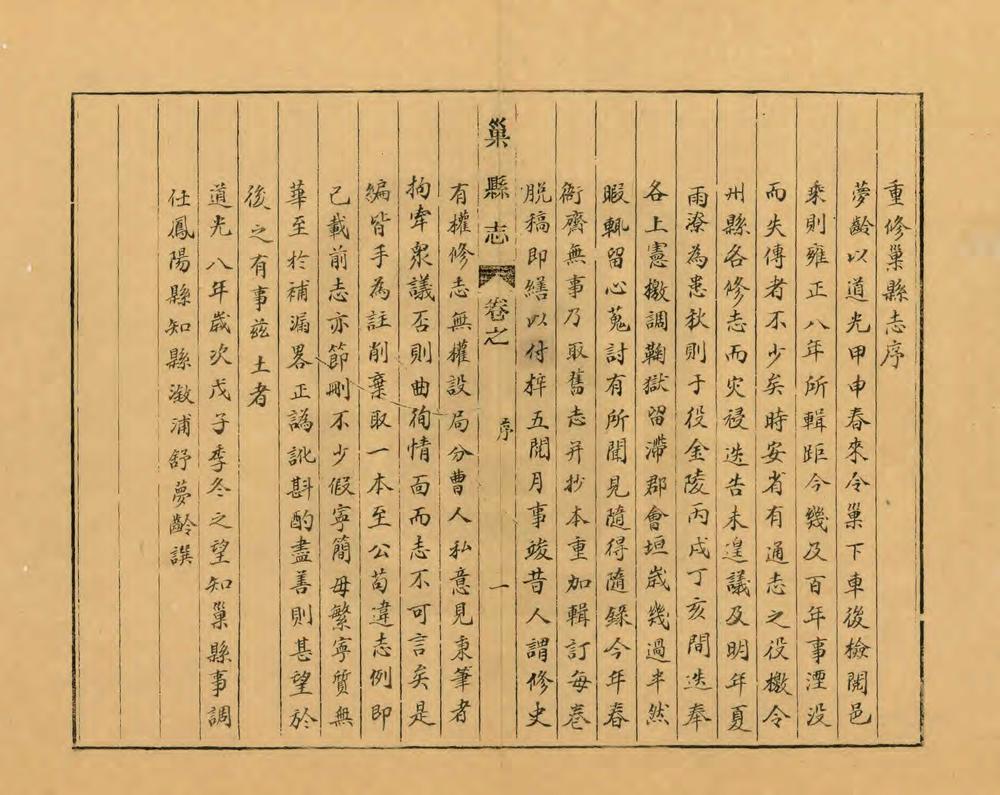 重修巢縣志序
夢齡以道光甲申春來令巢下車後檢閱邑
乘則雍正八年所輯距今幾及百年事湮没
而失傳者不少矣時安省有通志之役檄令
州縣各修志而灾祲迭告未遑議及明年夏
雨潦為患秋則于役金陵丙戌丁亥間迭奉
各上憲檄調鞠獄留滯郡會垣歲幾過半然
暇輒留心蒐討有所聞見隨得隨錄今年春
衙齋無事乃取舊志并抄本重加輯訂每卷
脱稿即繕以付梓五閱月事竣昔人謂修史
巢縣志 卷之 序 一
有權修志無權設局分曹人私意見秉筆者
拘牽衆議否則曲徇情面而志不可言矣是
編皆手為註削棄取一本至公苟違志例即
已載前志亦節刪不少假寧簡毋繁寧質無
華至於補漏畧正譌訛斟酌盡善則甚望於
後之有事兹土者
道光八年歲次戊子季冬之望知巢縣事調
任鳳陽縣知縣溆浦舒夢齡譔